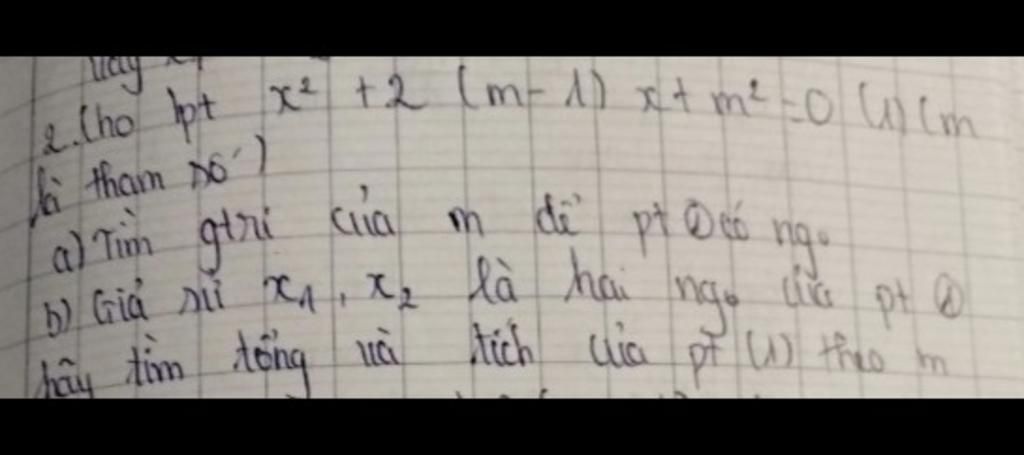 2. Cho pt x² + 2 (m - 1) x + m² = 0 (1) (m
là tham số)
a) Tìm gtrị của m để pt ① có ng₀
b) Giả sử x₁, x₂ là hai ng₀ của pt ①
hãy tìm tổng và tích của pt (1) theo m